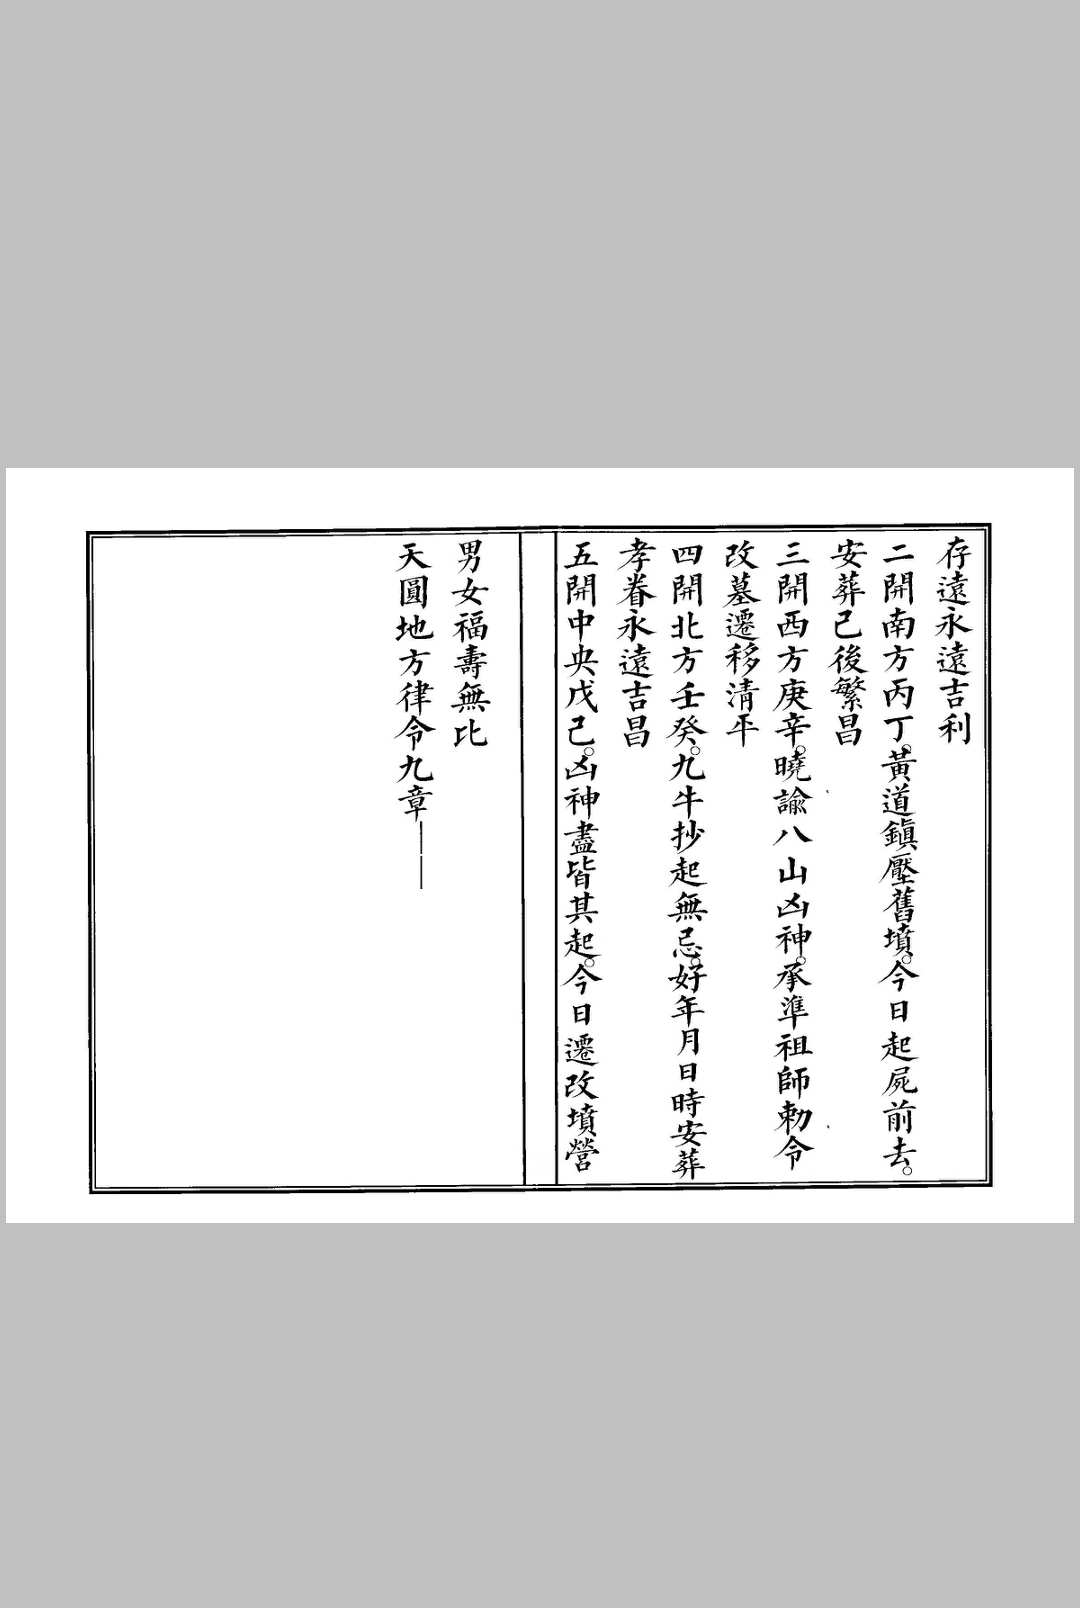 存遠永遠吉利
二開南方丙丁。黃道鎮壓舊墳。今日起屍前去。
安葬己後繁昌
三開西方庚辛。曉諭八山凶神。承準祖師勅令
改墓遷移清平
四開北方壬癸。九牛抄起無忌。好年月日時安葬
孝眷永遠吉昌
五開中央戊己。凶神盡皆其起。今日遷改墳營
男女福壽無比
天圓地方律令九章——